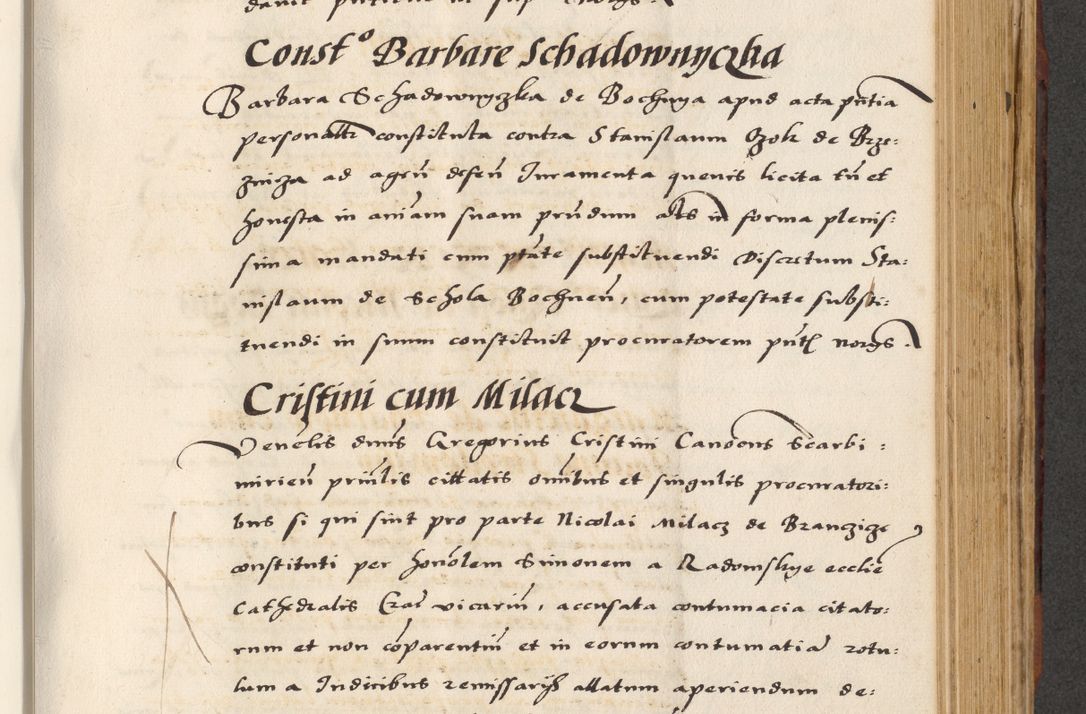 Const° Barbare Schadownyczka
Barbara Schadownyczka de Bochnya apud acta pntia
personalr constituta contra Stanislaum Gzok de Brze:
znicza ad agen defen Iuramenta quevis licita tn et
honesta in aniam suam prndum als in forma plenis:
sima mandati cum ptate substituendi Discretum Sta:
nislaum de Schola Bochnen, cum potestate substi:
tuendi in suum constituit procuratorem pntl
Cristini cum Milacz
Venelis dnus Gregorius Cristini Canocus Scarbi:
mirien prinlis cittatis omibus et singulis procuratori:
bus si qui sint pro parte Nicolai Milacz de Branczicze
constituti per honolem Simonem a Radomskye ecclie
Cathedralis Crac vicarium, accusata contumacia citato:
rum et non comparentium et in eorum contumatia rotu:
lum a Iudicibus remissarijs allatum aperiendum de: